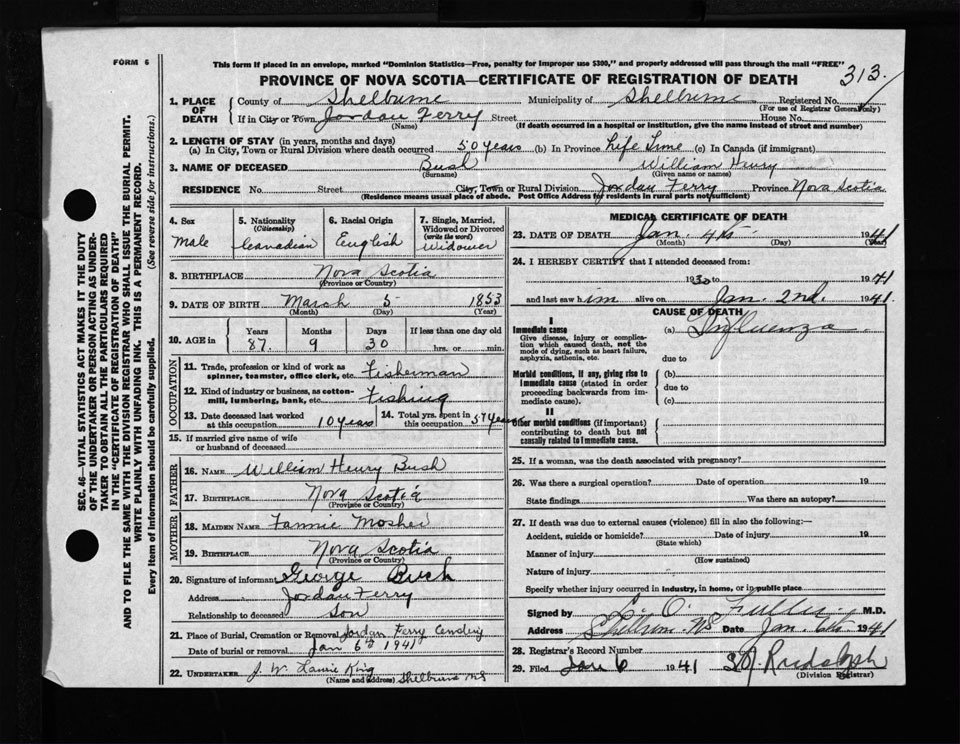 FORM 6
This form if placed in an envelope, marked "Dominion Statistics—Free, penalty for improper use $300," and properly addressed will pass through the mail "FREE"
PROVINCE OF NOVA SCOTIA—CERTIFICATE OF REGISTRATION OF DEATH
313/
SEC. 46—VITAL STATISTICS ACT MAKES IT THE DUTY
OF THE UNDERTAKER OR PERSON ACTING AS UNDER-
TAKER TO OBTAIN ALL THE PARTICULARS REQUIRED
IN THE "CERTIFICATE OF REGISTRATION OF DEATH"
AND TO FILE THE SAME WITH THE DIVISION REGISTRAR WHO SHALL ISSUE THE BURIAL PERMIT.
WRITE PLAINLY WITH UNFADING INK. THIS IS A PERMANENT RECORD.
Every item of information should be carefully supplied. (See reverse side for instructions.)
1. PLACE OF DEATH
County of Shelburne Municipality of Shelburne Registered No.
(For use of Registrar General only)
If in City or Town Jordan Ferry Street House No.
(Name) (If death occurred in a hospital or institution, give the name instead of street and number)
2. LENGTH OF STAY (in years, months and days)
(a) In City, Town or Rural Division where death occurred 50 years (b) In Province Life Time (c) In Canada (if immigrant)
3. NAME OF DECEASED Bush William Henry
(Surname) (Given name or names)
RESIDENCE No. Street City, Town or Rural Division Jordan Ferry Province Nova Scotia
(Residence means usual place of abode. Post Office Address for residents in rural parts not sufficient)
4. Sex
male
5. Nationality
(Citizenship)
Canadian
6. Racial Origin
English
7. Single, Married, Widowed or Divorced
(write the word)
Widower
8. BIRTHPLACE Nova Scotia
(Province or Country)
9. DATE OF BIRTH March 5 1853
(Month) (Day) (Year)
10. AGE in
Years Months Days If less than one day old
87 9 30 hrs. or min.
OCCUPATION
11. Trade, profession or kind of work as
spinner, teamster, office clerk, etc. Fisherman
12. Kind of industry or business, as cotton-
mill, lumbering, bank, etc. Fishing
13. Date deceased last worked
at this occupation 10 years
14. Total yrs. spent in
this occupation 57 years
15. If married give name of wife
or husband of deceased
FATHER
16. NAME William Henry Bush
17. BIRTHPLACE Nova Scotia
(Province or Country)
MOTHER
18. MAIDEN NAME Fannie Mosher
19. BIRTHPLACE Nova Scotia
(Province or Country)
20. Signature of informant George Bush
Address Jordan Ferry
Relationship to deceased Son
21. Place of Burial, Cremation or Removal Jordan Ferry
Date of burial or removal Jan 6th 1941
22. UNDERTAKER J. W. King
(Name and address) Shelburne NS
MEDICAL CERTIFICATE OF DEATH
23. DATE OF DEATH Jan. 4th 1941
(Month) (Day) (Year)
24. I HEREBY CERTIFY that I attended deceased from:
1930 to 1941
and last saw him alive on Jan. 2nd. 1941.
CAUSE OF DEATH
I
Immediate cause (a) Influenza
Give disease, injury or complica-
tion which caused death, not the
mode of dying, such as heart failure,
asphyxia, asthenia, etc. due to
Morbid conditions, if any, giving rise to (b)
immediate cause (stated in order due to
proceeding backwards from im-
mediate cause). (c)
II
Other morbid conditions (if important)
contributing to death but not
causally related to immediate cause.
25. If a woman, was the death associated with pregnancy?
26. Was there a surgical operation? Date of operation 19
State findings Was there an autopsy?
27. If death was due to external causes (violence) fill in also the following:—
Accident, suicide or homicide? Date of injury 19
(State which)
Manner of injury
(How sustained)
Nature of injury
Specify whether injury occurred in industry, in home, or in public place
Signed by L. O. Fuller M.D.
Address NS Date Jan. 6th 1941
28. Registrar's Record Number
29. Filed Jan 6 1941 Rudolph
(Division Registrar)